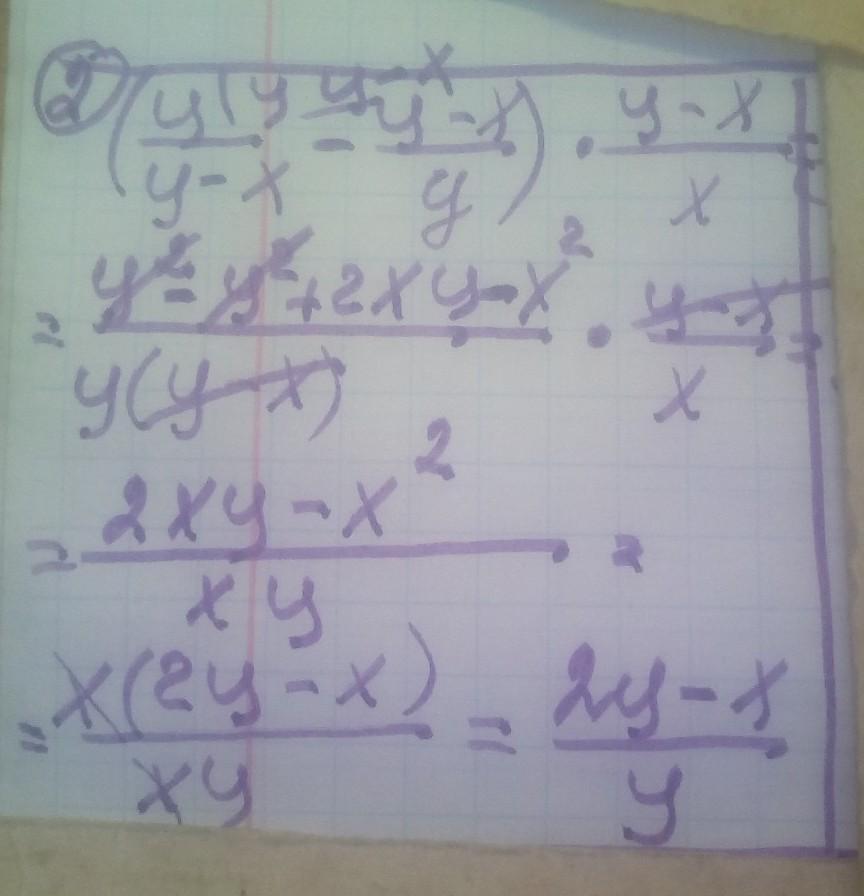 ② (y^{\y}/(y-x) - ^{y-x}(y-x)/y) · (y-x)/x =
= (y² - y² + 2xy - x²)/(y(y-x)) · (y-x)/x =
= (2xy - x²)/(xy) =
= x(2y - x)/(xy) = (2y - x)/y